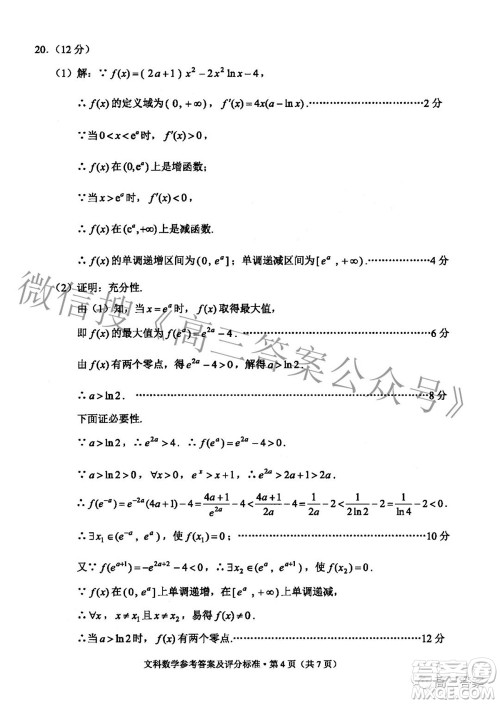 20.（12 分）
（1）解：∵ f(x)=（2a+1）x²-2x² ln x-4，
∴ f(x)的定义域为（0，+∞），f′(x)=4x(a-ln x).⋯⋯⋯⋯⋯⋯2 分
∵当0<x<eᵃ时，f′(x)>0，
∴ f(x)在(0,eᵃ)上是增函数；
∵当x>eᵃ时，f′(x)<0，
∴ f(x)在(eᵃ,+∞)上是减函数.
∴ f(x)的单调递增区间为(0，eᵃ]；单调递减区间为[eᵃ，+∞).⋯⋯⋯⋯4 分
（2）证明：充分性.
由（1）知，当x=eᵃ时，f(x)取得最大值，
即 f(x)的最大值为f(eᵃ)=e²ᵃ-4.⋯⋯⋯⋯⋯⋯6 分
由f(x)有两个零点，得e²ᵃ-4>0，解得a>ln2.
∴ a>ln2.⋯⋯⋯⋯⋯⋯8 分
下面证必要性.
∵ a>ln2，∴ e²ᵃ>4. ∵ a>ln2，∴ e^x>x+1，∴ e²ᵃ>2a+1>2a>0.
∴ f(e⁻ᵃ)=e⁻²ᵃ(4a+1)-4=(4a+1)/e²ᵃ-4<(4a+1)/2a-4<(4a+1)/2a-2=1/2a<1/2ln2-2=1/ln4-2<0.
∴ ∃x₁∈(e⁻ᵃ，eᵃ)，使f(x₁)=0.⋯⋯⋯⋯⋯⋯10 分
又∵ f(eᵃ⁺¹)=-e²ᵃ⁺²-4<0，∴ ∃x₂∈(eᵃ，eᵃ⁺¹)，使 f(x₂)=0.
∵ f(x)在(0，eᵃ]上单调递增，在[eᵃ，+∞)上单调递减，
∴ ∀x，x≠x₁，且x≠x₂，都有f(x)≠0.
∴当a>ln2时，f(x)有两个零点.⋯⋯⋯⋯⋯⋯12 分
文科数学参考答案及评分标准·第 4 页（共 7 页）
微信搜《高三答案公众号》
高三答案